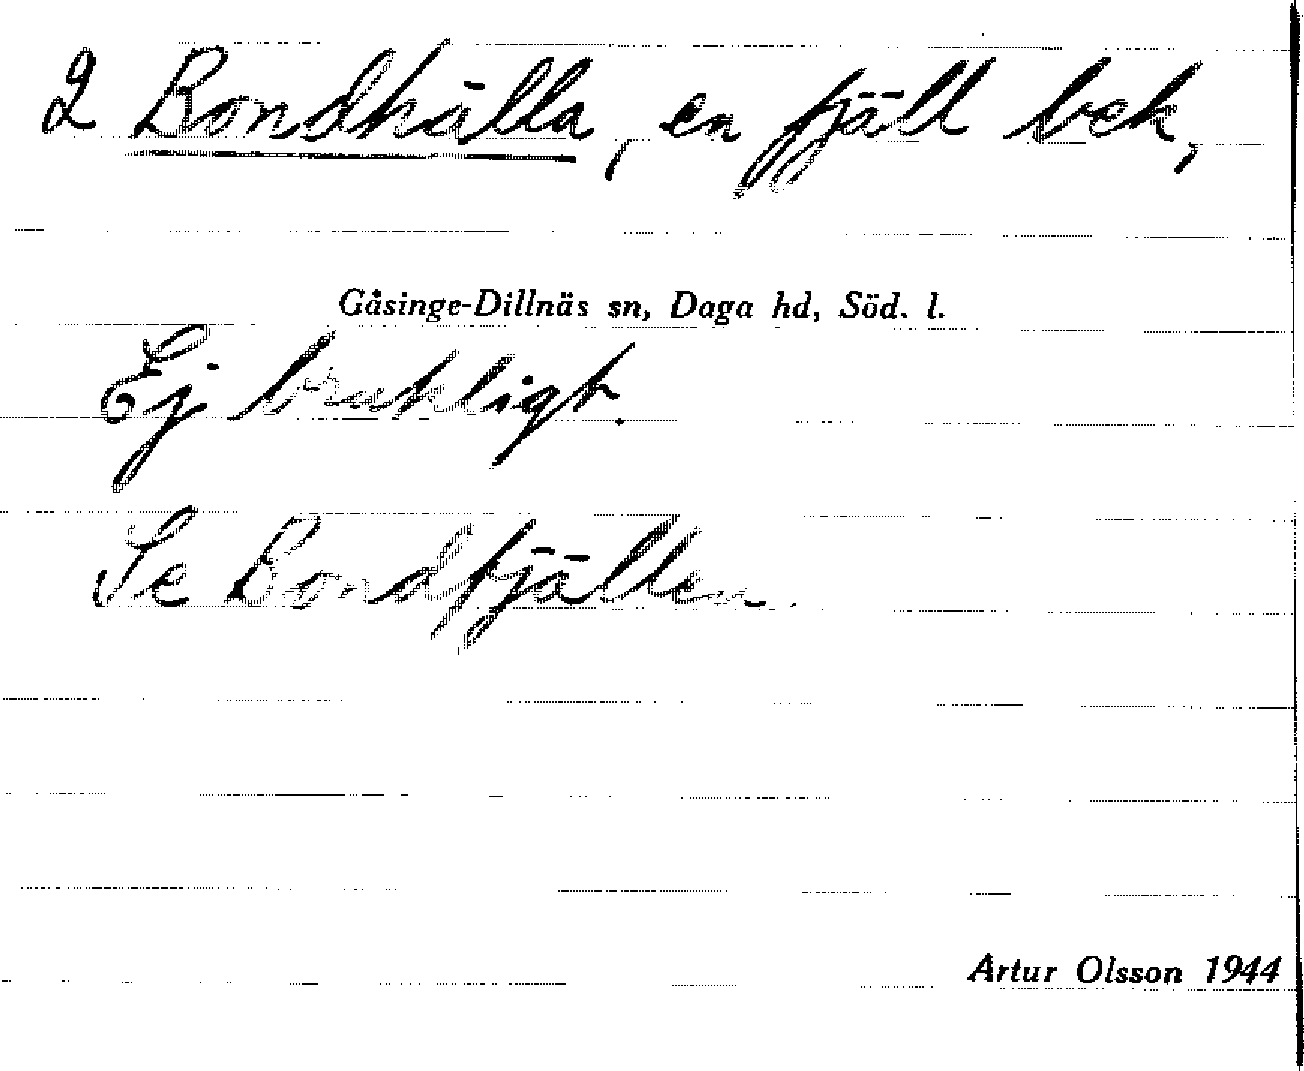 2 Bondhälla, en fjäll bek,
Gåsinge-Dillnäs sn, Daga hd, Söd. l.
Ej brukligt.
Se Bondfjällen.
Artur Olsson 1944